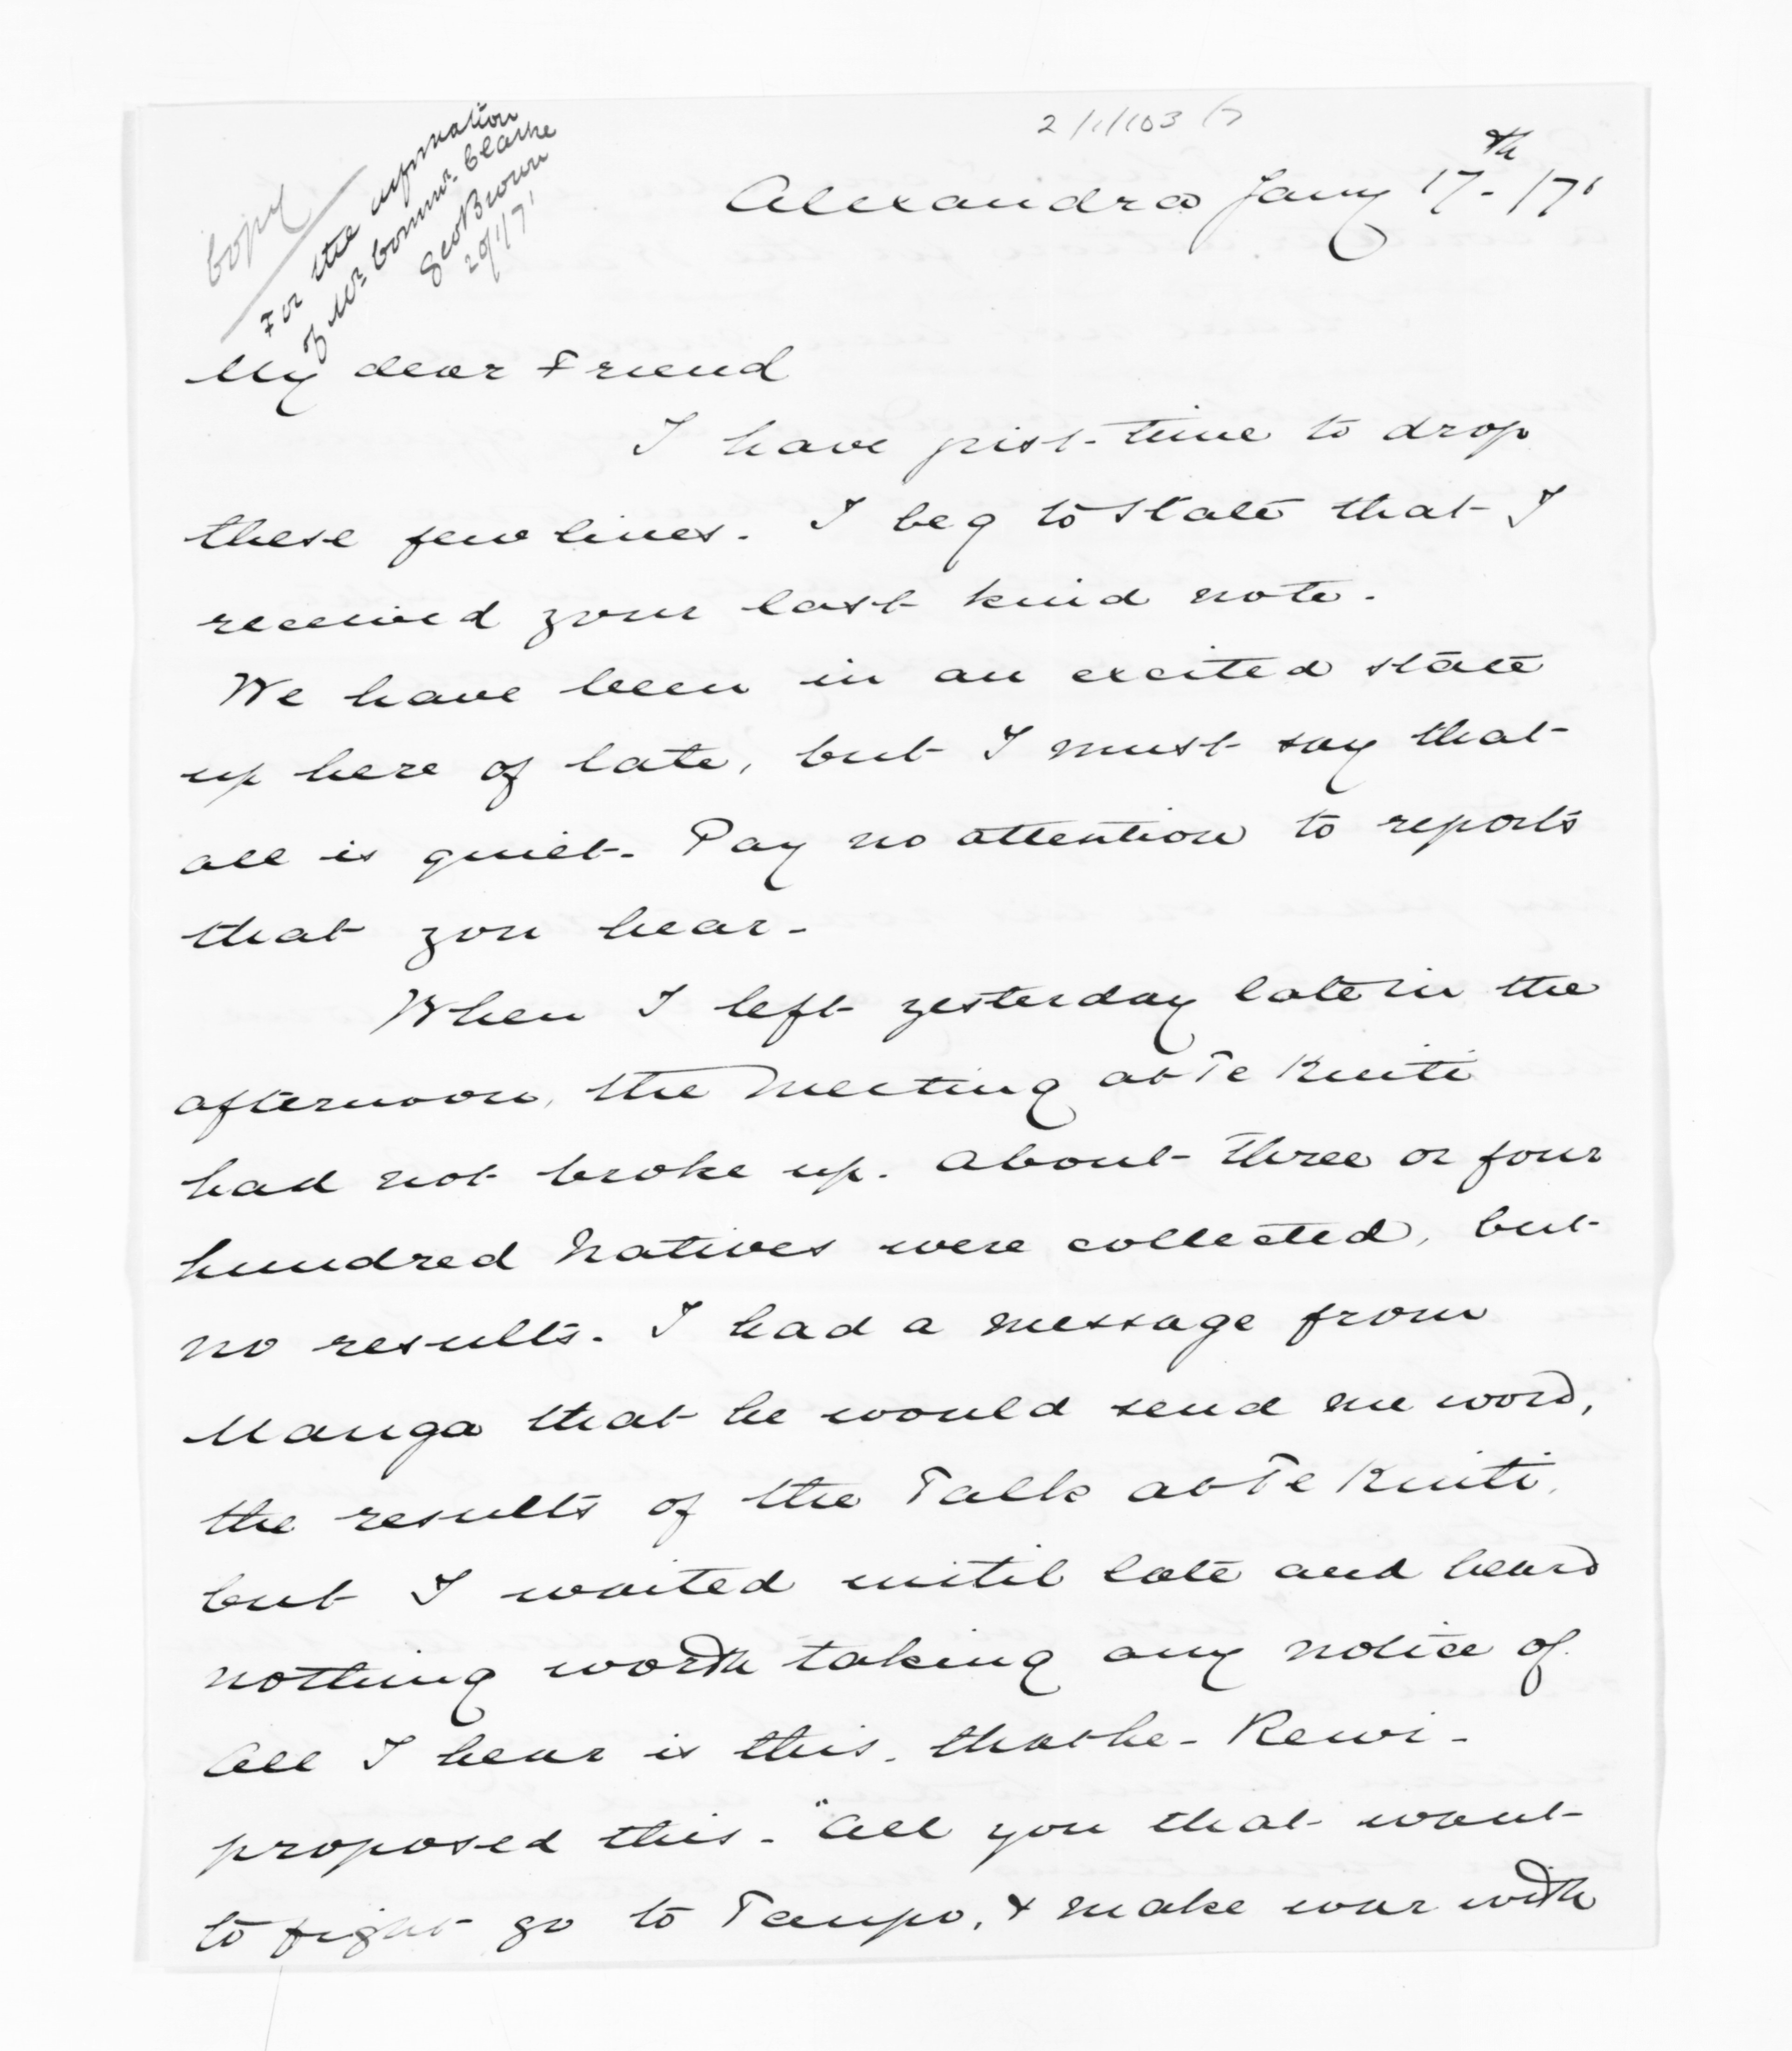 2/1/103
Copy
For the information
of Mr. Commr. Clarke
Geo Brown
20/1/71
Alexandra Jany 17th /71
My dear Friend
I have just time to drop
these few lines. I beg to state that I
received your last kind note.
We have been in an excited state
up here of late, but I must say that
all is quiet. Pay no attention to reports
that you hear.
When I left yesterday late in the
afternoon, the Meeting at Te Kuiti
had not broke up. About three or four
hundred Natives were collected, but
no results. I had a message from
Manga that he would send me word,
the results of the Talk at Te Kuiti,
but I waited until late and heard
nothing worth taking any notice of.
All I hear is this. that he - Rewi -
proposed this. "All you that want
to fight go to Taupo, & make war with